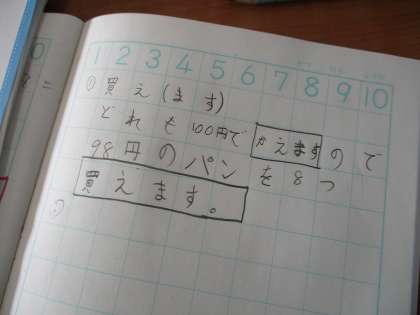 1 2 3 4 5 6 7 8 9 10
① 買え(ます)
どれも100円でかえますので
98円のパンを8つ
買えます。
②